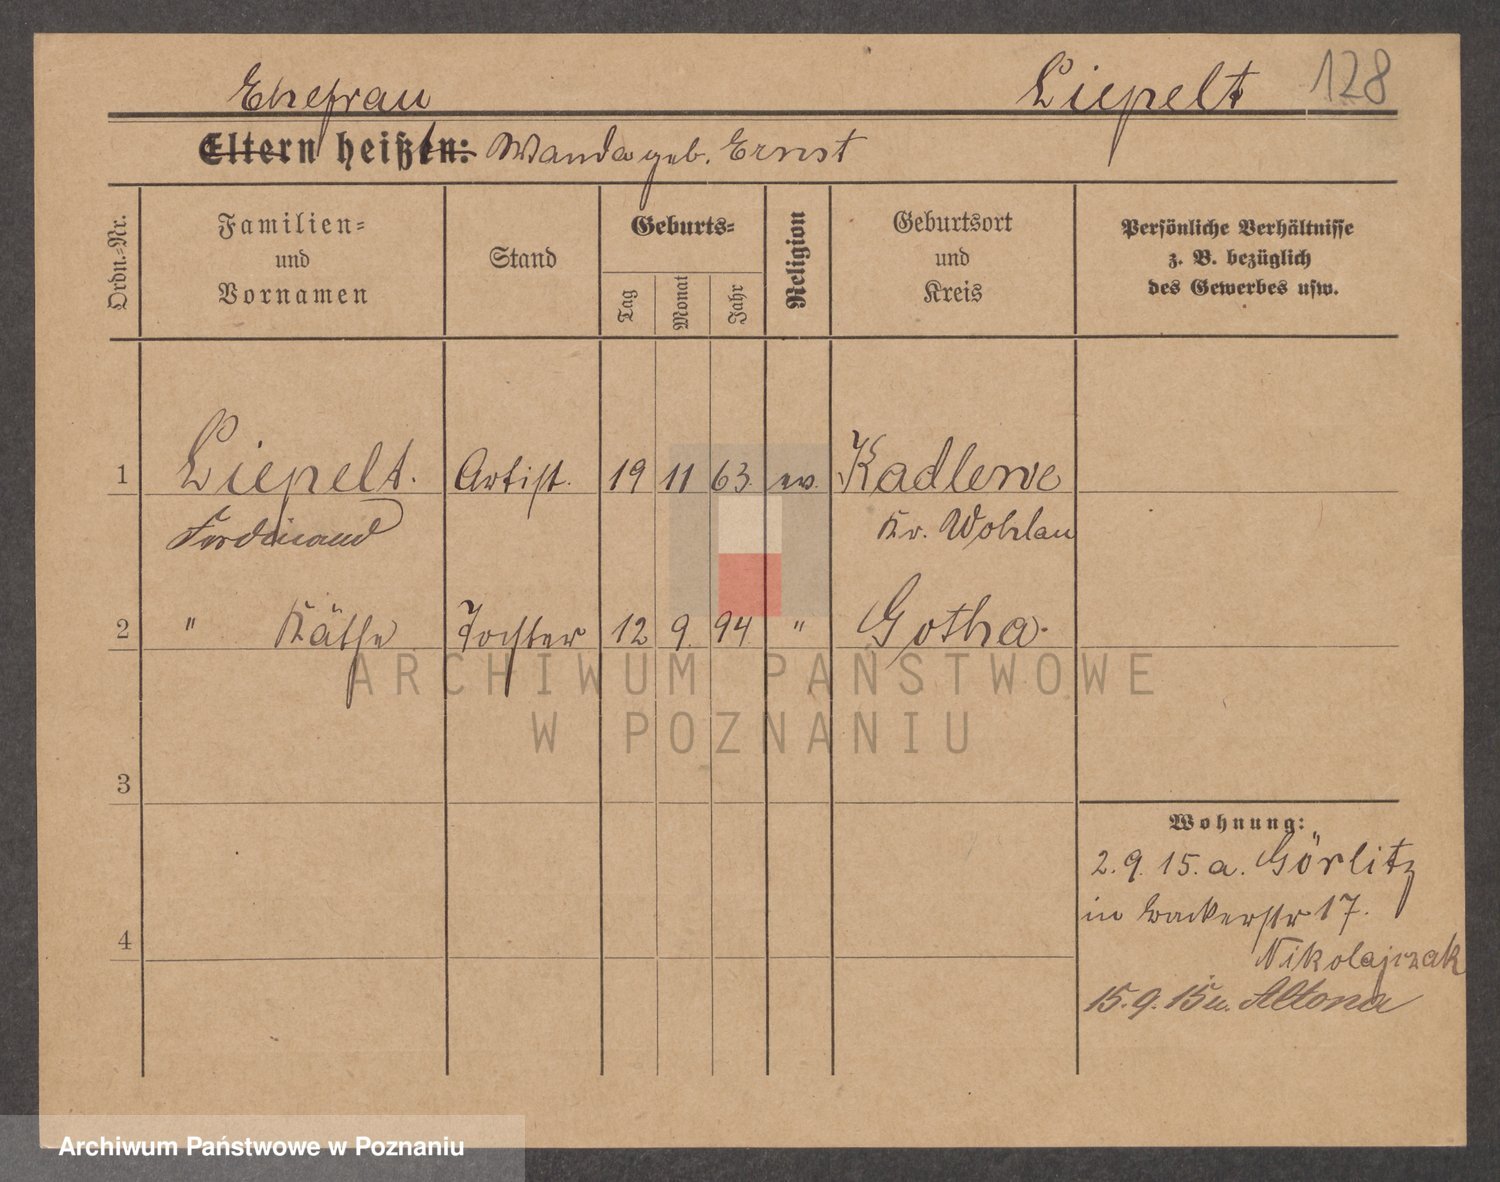 Ehefrau Liepelt 128
Eltern heißen: Wanda geb. Ernst
Ordn.=Nr.
Familien=
und
Vornamen
Stand
Geburts=
Tag
Monat
Jahr
Religion
Geburtsort
und
Kreis
Persönliche Verhältnisse
z. B. bezüglich
des Gewerbes usw.
1 Liepelt. Artist. 19 11 63. ev. Kadlewe
Ferdinand Kr. Wohlau
2 " Käthe Tochter 12 9. 94 " Gotha.
ARCHIWUM PAŃSTWOWE
W POZNANIU
3
Wohnung:
2. 9. 15. a. Görlitz
in 17.
4
Nikolajczak
15. 9. 15 n. Altona
Archiwum Państwowe w Poznaniu